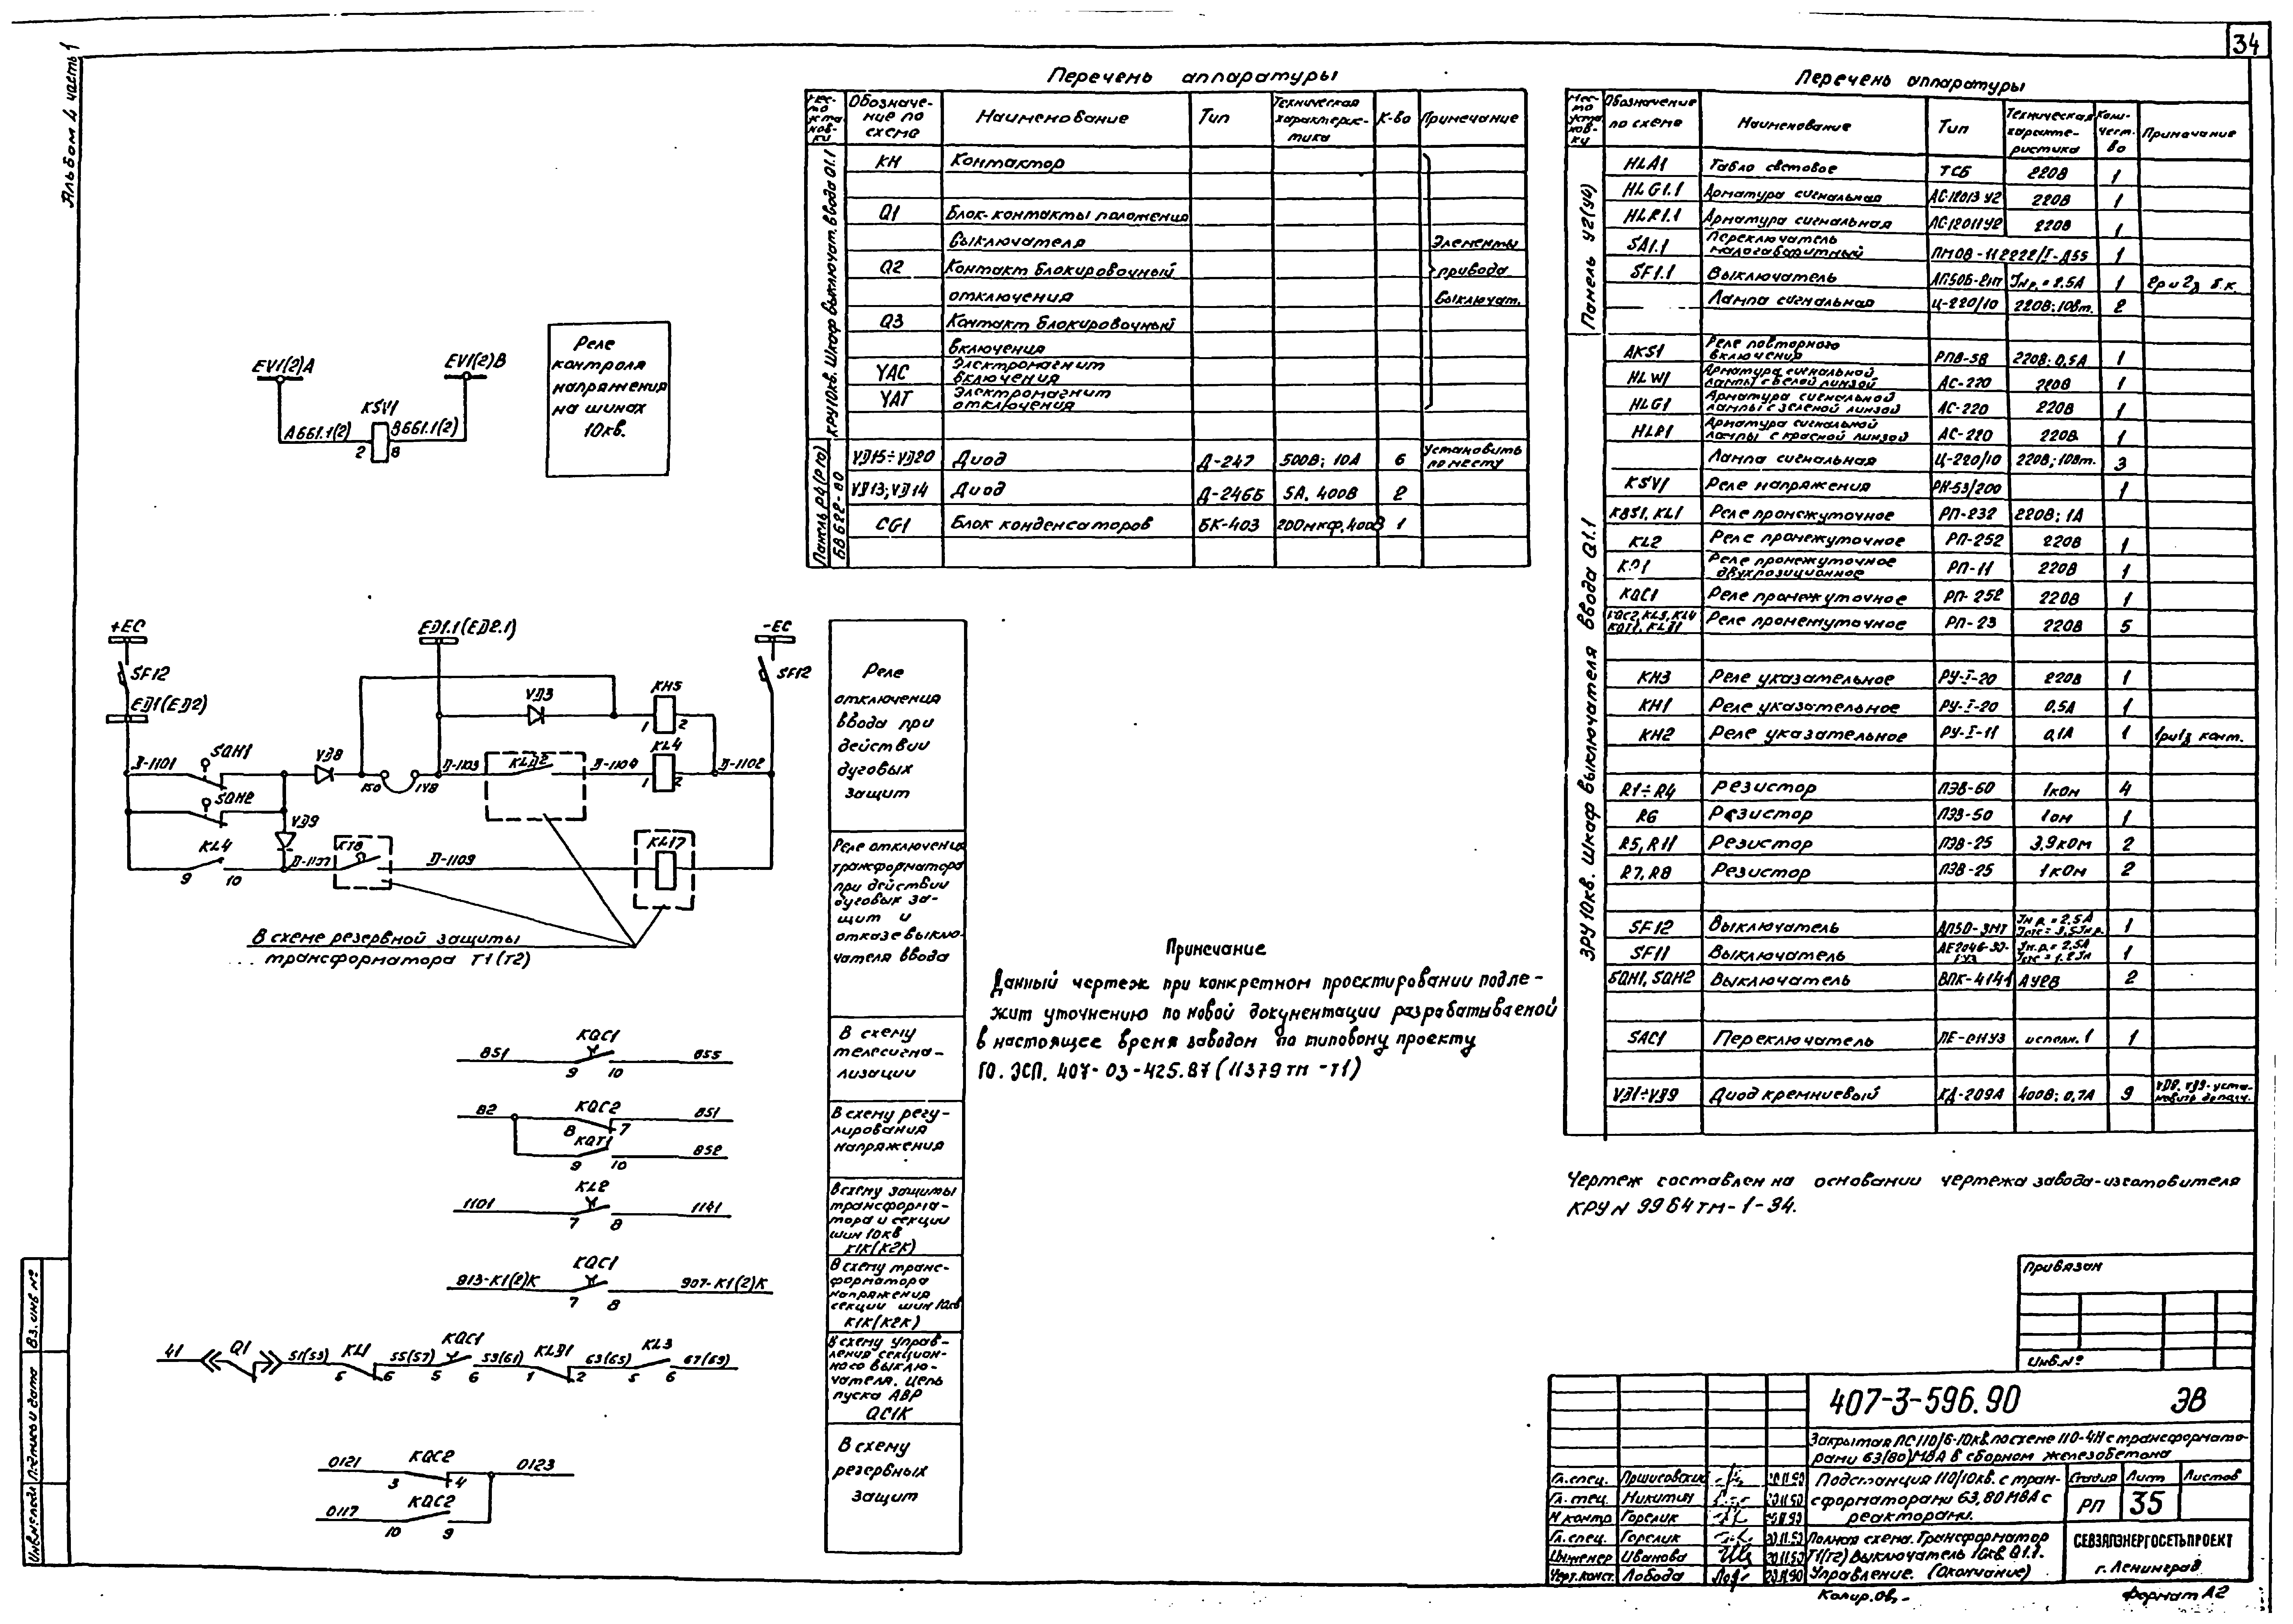 34
Альбом 4 часть 1
Перечень аппаратуры
Место установки
Обозначение по схеме
Наименование
Тип
Техническая характеристика
К-во
Примечание
КРУ 10кв. Шкаф выключат. ввода Q1.1
КН Контактор
Q1 Блок-контакты положения
выключателя
Q2 Контакт блокировочный
отключения
Q3 Контакт блокировочный
включения
YAC Электромагнит включения
YAT Электромагнит отключения
Элементы
привода
выключат.
Панель Р4(Р10)
БВ 622-80
VD15÷VD20 Диод Д-247 500В; 10А 6 Установить по месту
VD13; VD14 Диод Д-246Б 5А, 400В 2
CG1 Блок конденсаторов БК-403 200мкф, 400В 1
Перечень аппаратуры
Место установки
Обозначение по схеме
Наименование
Тип
Техническая характеристика
Количество
Примечание
Панель У2(У4)
HLA1 Табло световое ТСБ 220В 1
HLG1.1 Арматура сигнальная АС12013У2 220В 1
HLR1.1 Арматура сигнальная АС12011У2 220В 1
SA1.1 Переключатель малогабаритный ПМОВ-112222/I-Д55 1
SF1.1 Выключатель АП50Б-2МТ Iн.р.=2.5А 1 2р и 2з б.к.
Лампа сигнальная Ц-220/10 220В; 10вт. 2
ЗРУ 10кв. Шкаф выключателя ввода Q1.1
AKS1 Реле повторного включения РПВ-58 220В; 0,5А 1
HLW1 Арматура сигнальной лампы с белой линзой АС-220 220В 1
HLG1 Арматура сигнальной лампы с зеленой линзой АС-220 220В 1
HLR1 Арматура сигнальной лампы с красной линзой АС-220 220В 1
Лампа сигнальная Ц-220/10 220В; 10вт. 3
KSV1 Реле напряжения РН-53/200 1
KBS1, KL1 Реле промежуточное РП-232 220В; 1А
KL2 Реле промежуточное РП-252 220В 1
Реле промежуточное двухпозиционное РП-11 220В 1
KQC1 Реле промежуточное РП-252 220В 1
KQC2, KL3, KL4 KQT1, KLD1 Реле промежуточное РП-23 220В 5
KH3 Реле указательное РУ-I-20 220В 1
KH1 Реле указательное РУ-I-20 0,5А 1
KH2 Реле указательное РУ-I-11 0,1А 1 1ри1з конт.
R1÷R4 Резистор ПЭВ-50 1ком 4
R6 Резистор ПЭВ-50 1ом 1
R5, R11 Резистор ПЭВ-25 3,9кОм 2
R7, R8 Резистор ПЭВ-25 1кОм 2
SF12 Выключатель АП50-3МТ Iн.р.=2.5А Iотс=3,5Iн.р. 1
SF11 Выключатель Iн.р.=2.5А 1
SQH1, SQH2 Выключатель ВПК-4141 2
SAC1 Переключатель ПЕ-011У3 исполн. 1 1
VD1÷VD9 Диод кремниевый КД-209А 400В; 0,7А 9
EV1(2)A
EV1(2)B
KSV1
A661.1(2)
B661.1(2)
2 8
Реле
контроля
напряжения
на шинах
10кв.
+EC
ED1.1(ED2.1)
-EC
SF12
SF12
ED1(ED2)
VD3
KH5
1 2
SQH1
VD8
KLD2
KL4
1 2
D-1101
150
148
D-1103
D-1104
D-1102
SQH2
VD9
KL4
9 10
D-1137
KT8
D-1109
KL17
В схеме резервной защиты
трансформатора Т1(Т2)
Реле
отключения
ввода при
действии
дуговых
защит
Реле отключения
трансформатора
при действии
дуговых за-
щит и
отказе выклю-
чателя ввода
851
KQC1
9 10
855
В схему
телесигна-
лизации
82
KQC2
8 7
851
KQT1
9 10
852
В схему регу-
лирования
напряжения
1101
KL2
7 8
1141
В схему защиты
трансформа-
тора и секции
шин 10кв
K1K(K2K)
913-K1(2)K
KQC1
7 8
907-K1(2)K
В схему транс-
форматора
напряжения
секции шин 10кв
K1K(K2K)
41
Q1
51(53)
KL1
5 6
55(57)
KQC1
5 6
59(61)
KLD1
1 2
63(65)
KL3
5 6
67(69)
В схему управ-
ления секцион-
ного выклю-
чателя. Цепь
пуска АВР
QC1K
0121
KQC2
3 4
0123
0117
KQC2
10 9
В схему
резервных
защит
Примечание
Данный чертеж при конкретном проектировании подле-
жит уточнению по новой документации разрабатываемой
в настоящее время заводом по типовому проекту
ГО. ЭСП. 407-03-425.87 (11379тм-т1)
Чертеж составлен на основании чертежа завода-изготовителя
КРУ N 9964тм-1-34.
Привязан
Инв.№
407-3-596.90 ЭВ
Закрытая ПС 110/6-10кв по схеме 110-4Н с трансформато-
рами 63(80)МВА в сборном железобетоне
Гл.спец.
Гл. спец. Никитин
Н контр Горелик
Гл.спец. Горелик
Инженер Иванова
Черт.конст. Лобода
Подстанция 110/10кв. с тран-
сформаторами 63, 80 МВА с
реакторами.
Стадия Лист Листов
РП 35
Полная схема. Трансформатор
Т1(Т2) Выключатель 10кв Q1.1.
Управление. (Окончание)
СЕВЗАПЭНЕРГОСЕТЬПРОЕКТ
г. Ленинград
Формат А2
Вз. инв №
Подпись и дата
Инв.№ подл